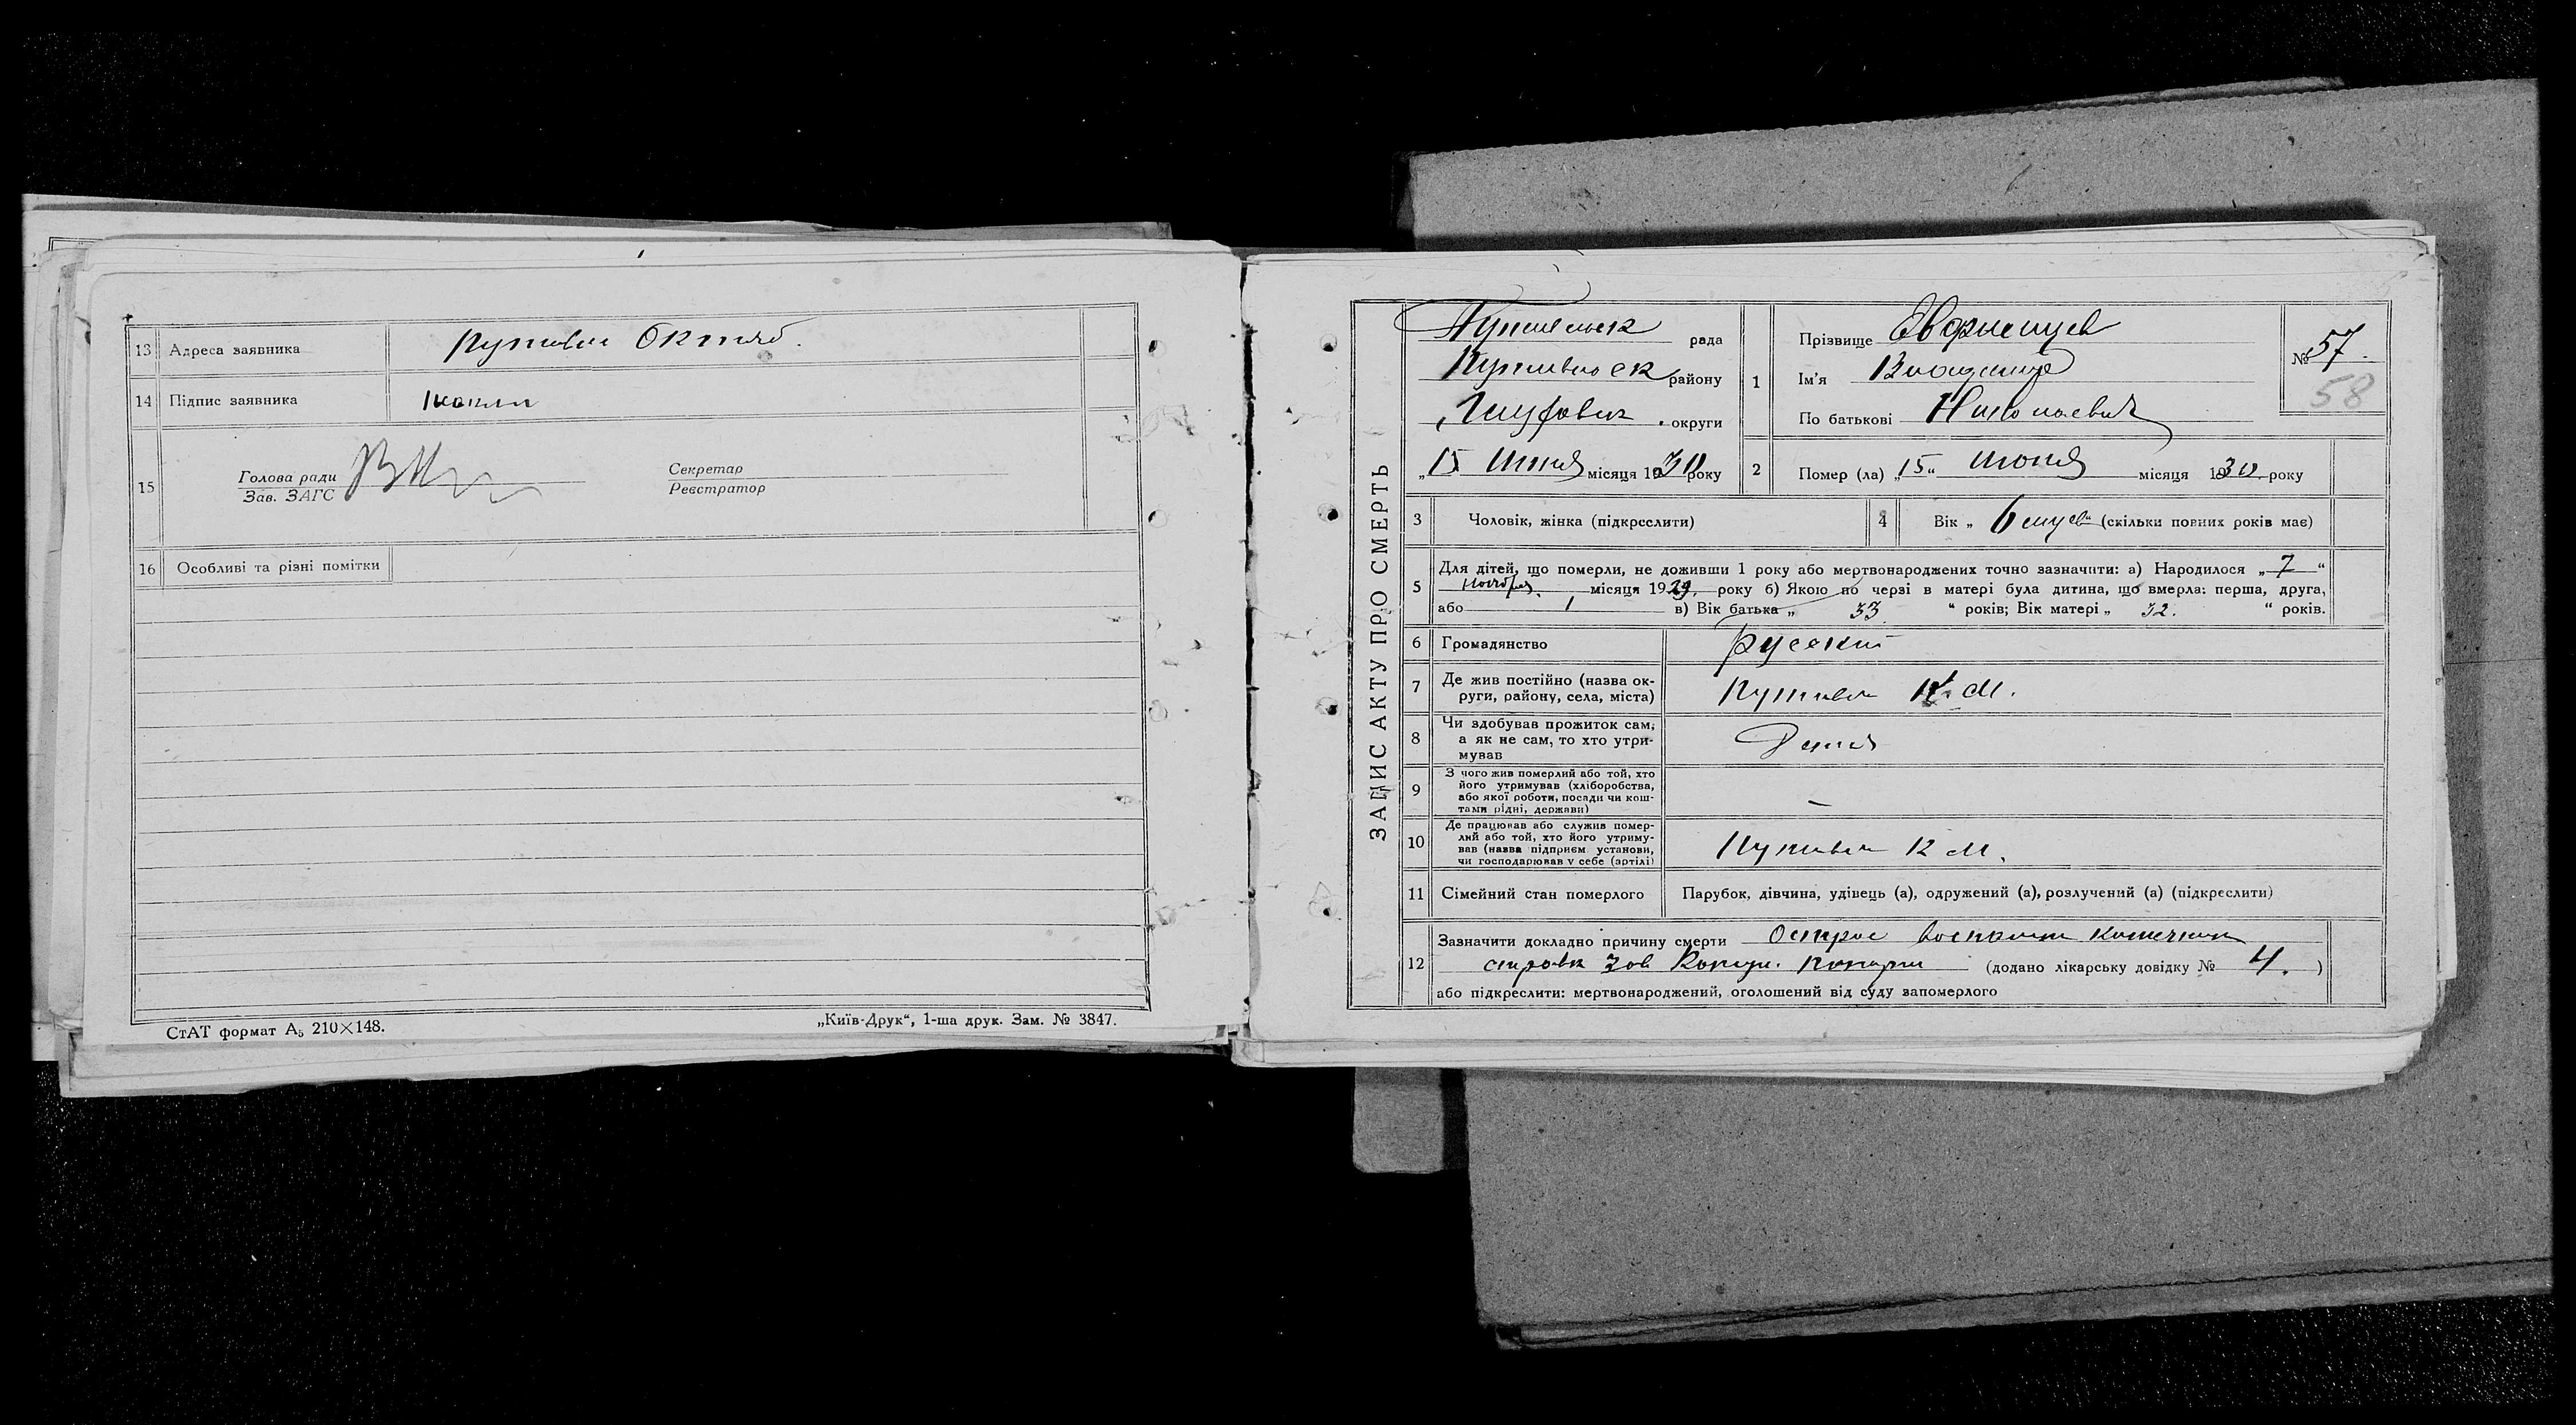 13 Адреса заявника Путивль Октяб.
14 Підпис заявника
15 Голова ради Секретар
Зав. ЗАГС Реєстратор
16 Особливі та різні помітки
СтАТ формат А5 210×148. „Київ-Друк“, 1-ша друк. Зам. № 3847.
ЗАПИС АКТУ ПРО СМЕРТЬ
рада
Путивльск району
округи
„15 Июня місяця 1930 року
1 Прізвище
Ім'я Владимир
По батькові Николаевич
№ 57.
58
2 Помер (ла) „15“ Июня місяця 1930. року
3 Чоловік, жінка (підкреслити)
4 Вік „ 6 месяцев “ (скільки повних років має)
5 Для дітей, що померли, не доживши 1 року або мертвонароджених точно зазначити: а) Народилося „ 7 “
Ноября. місяця 1929. року б) Якою по черзі в матері була дитина, що вмерла: перша, друга,
або 1 в) Вік батька „ 33. “ років; Вік матері „ 32. “ років.
6 Громадянство русский
7 Де жив постійно (назва ок-
руги, району, села, міста) Путивль К. М.
8 Чи здобував прожиток сам,
а як не сам, то хто утри-
мував Дитя
9 З чого жив померлий або той, хто
його утримував (хліборобства,
або якої роботи, посади чи кош-
тами рідні, держави) –
10 Де працював або служив помер-
лий або той, хто його утриму-
вав (назва підприєм. установи,
чи господарював у себе (артілі) Путивль К М.
11 Сімейний стан померлого Парубок, дівчина, удівець (а), одружений (а), розлучений (а) (підкреслити)
12 Зазначити докладно причину смерти Острое воспален кишечника
(додано лікарську довідку № 4. )
або підкреслити: мертвонароджений, оголошений від суду запомерлого